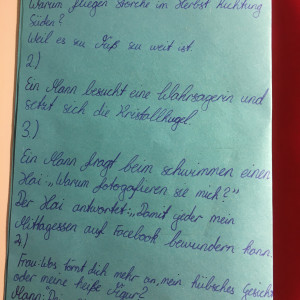 Warum fliegen Störche im Herbst Richtung
Süden?
Weil es zu Fuß zu weit ist.
2)
Ein Mann besucht eine Wahrsagerin und
setzt sich die Kristallkugel.
3.)
Ein Mann fragt beim schwimmen einen
Hai: „Warum fotografieren sie mich?“
Der Hai antwortet: „Damit jeder mein
Mittagessen auf Facebook bewundern kann.
4)
Frau: Was törnt dich mehr an, mein hübsches Gesicht
oder meine heiße Figur?
Mann: